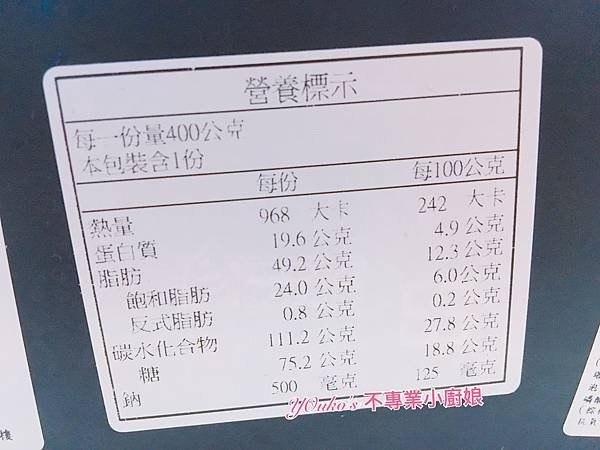 營養標示
每一份量400公克
本包裝含1份
每份 每100公克
熱量 968 大卡 242 大卡
蛋白質 19.6 公克 4.9 公克
脂肪 49.2 公克 12.3 公克
飽和脂肪 24.0 公克 6.0公克
反式脂肪 0.8 公克 0.2 公克
碳水化合物 111.2 公克 27.8 公克
糖 75.2 公克 18.8 公克
鈉 500 毫克 125 毫克
YOuko's 不專業小廚娘
樓